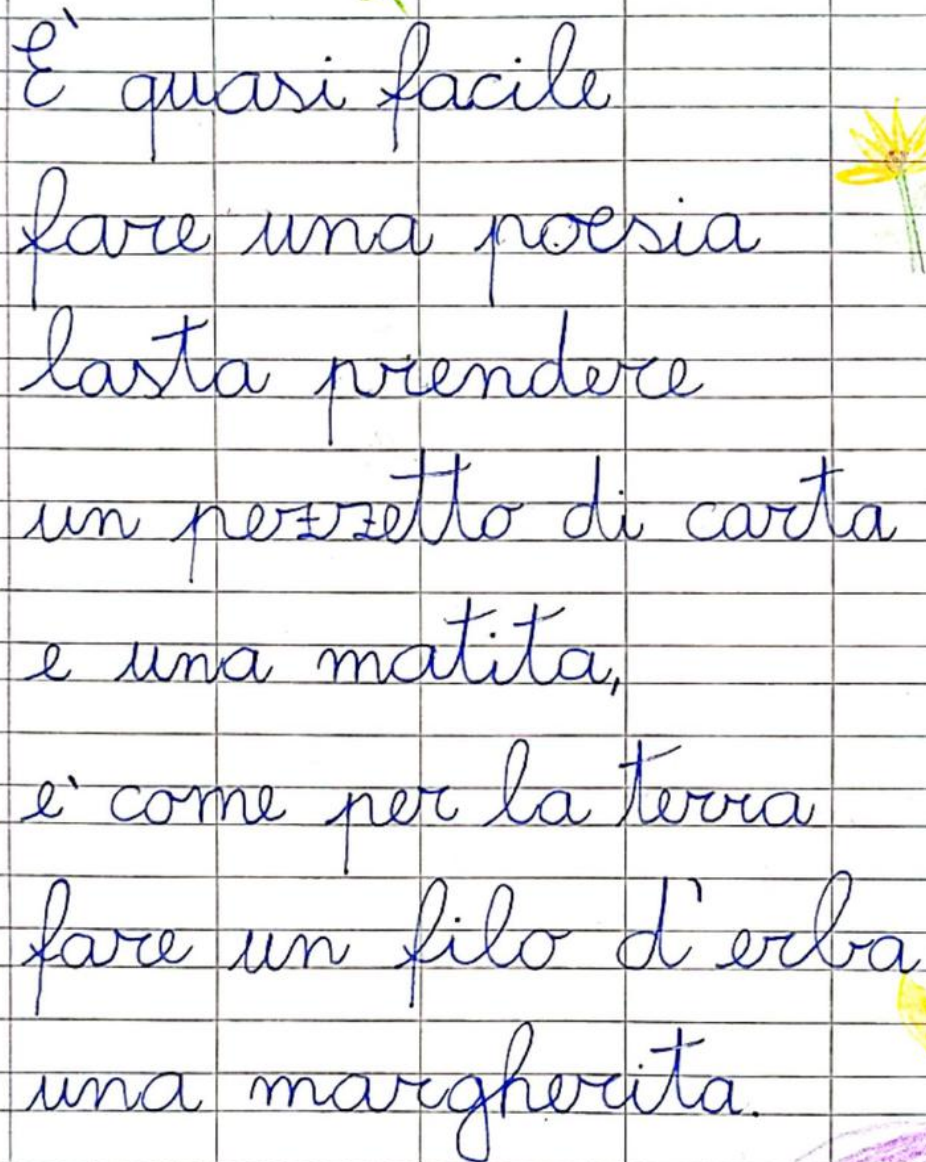 È quasi facile
fare una poesia
basta prendere
un pezzetto di carta
e una matita,
è come per la terra
fare un filo d'erba
una margherita.